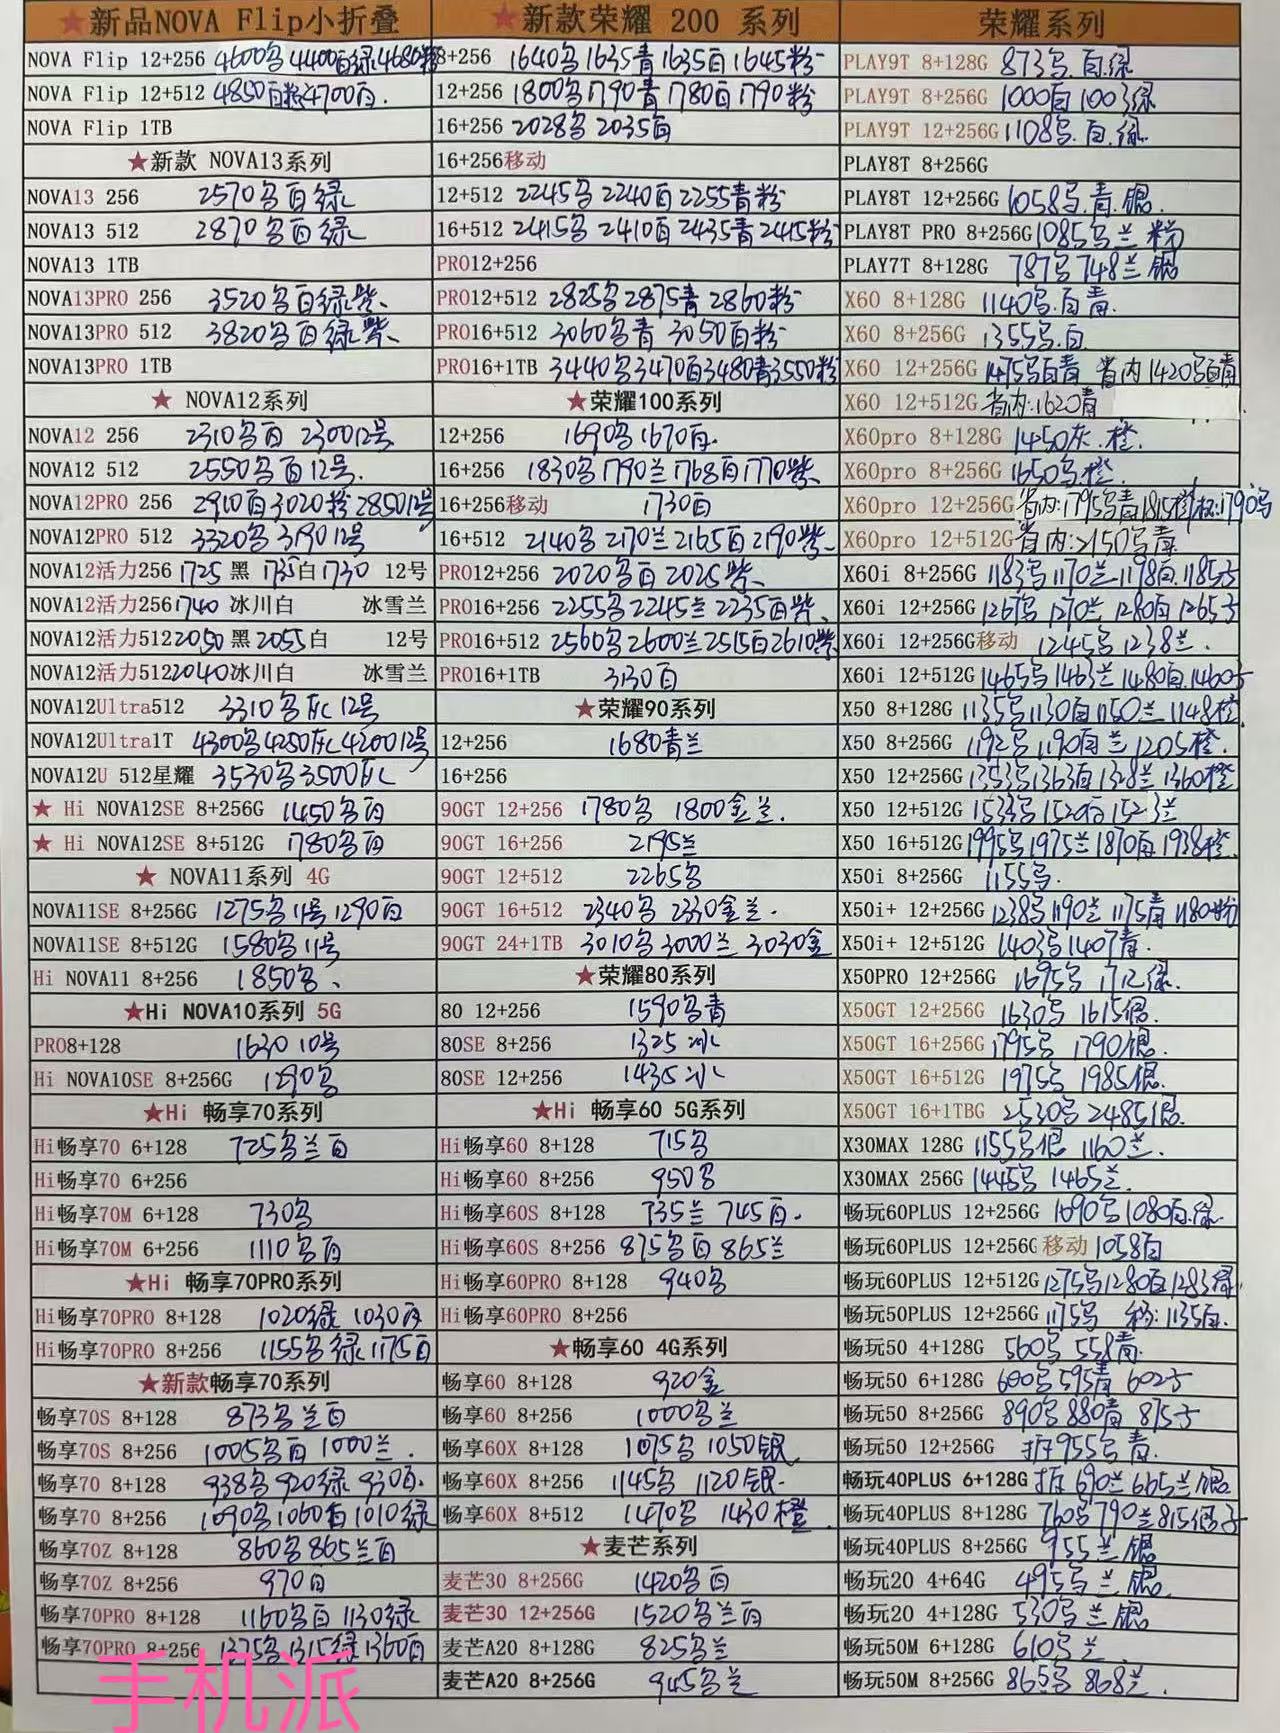 ★新品NOVA Flip小折叠
NOVA Flip 12+256 4600乌4400白绿4680粉
NOVA Flip 12+512 4850白粉4700白.
NOVA Flip 1TB
★新款 NOVA13系列
NOVA13 256 2570乌白绿
NOVA13 512 2870乌白绿
NOVA13 1TB
NOVA13PRO 256 3520乌白绿紫、
NOVA13PRO 512 3820乌白绿紫、
NOVA13PRO 1TB
★ NOVA12系列
NOVA12 256 2310乌白 230012号
NOVA12 512 2550乌白12号.
NOVA12PRO 256 2910白3020粉285012号
NOVA12PRO 512 3320乌319012号
NOVA12活力256 1725 黑 1735白1730 12号
NOVA12活力256 1740 冰川白 冰雪兰
NOVA12活力512 2050黑2055白 12号
NOVA12活力512 2040冰川白 冰雪兰
NOVA12Ultra512 3310乌灰12号
NOVA12Ultra1T 4300乌4250灰420012号
NOVA12U 512星耀 3530乌3500灰
★ Hi NOVA12SE 8+256G 1450乌白
★ Hi NOVA12SE 8+512G 1780乌白
★ NOVA11系列 4G
NOVA11SE 8+256G 1275乌11号1290白
NOVA11SE 8+512G 1580乌11号
Hi NOVA11 8+256 1850乌、
★Hi NOVA10系列 5G
PRO8+128 1630 10号
Hi NOVA10SE 8+256G 1290乌
★Hi 畅享70系列
Hi畅享70 6+128 725乌兰白
Hi畅享70 6+256
Hi畅享70M 6+128 730乌
Hi畅享70M 6+256 1110乌白
★Hi 畅享70PRO系列
Hi畅享70PRO 8+128 1020绿 1030白
Hi畅享70PRO 8+256 1155乌绿1175白
★新款畅享70系列
畅享70S 8+128 873乌兰白
畅享70S 8+256 1005乌白 1000兰.
畅享70 8+128 938乌920绿930白.
畅享70 8+256 1090乌1060白1010绿
畅享70Z 8+128 860乌865兰白
畅享70Z 8+256 970白
畅享70PRO 8+128 1160乌白1130绿
畅享70PRO 8+256 1375乌1315绿1360白
手机派
★新款荣耀 200 系列
8+256 1640乌1635青1635白1645粉
12+256 1800乌1790青1780白1790粉
16+256 2028乌2035白
16+256移动
12+512 2245乌2240白2255青粉
16+512 2415乌2410白2435青2415粉
PRO12+256
PRO12+512 2825乌2875青2860粉
PRO16+512 3060乌青 3050白粉
PRO16+1TB 3440乌3470白3480青3550粉
★荣耀100系列
12+256 1690乌1670白.
16+256 1830乌1790兰1768白1770紫、
16+256移动 1730白
16+512 2140乌2170兰2165白2190紫、
PRO12+256 2020乌白2025紫、
PRO16+256 2255乌2245兰2235白紫、
PRO16+512 2560乌2600兰2515白2610紫
PRO16+1TB 3130白
★荣耀90系列
12+256 1680青兰
16+256
90GT 12+256 1780乌 1800金兰.
90GT 16+256 2195兰
90GT 12+512 2265乌
90GT 16+512 2340乌2330金兰.
90GT 24+1TB 3010乌3000兰3030金
★荣耀80系列
80 12+256 1590乌青
80SE 8+256 1325冰
80SE 12+256 1435冰
★Hi 畅享60 5G系列
Hi畅享60 8+128 715乌
Hi畅享60 8+256 950乌
Hi畅享60S 8+128 735兰 745白.
Hi畅享60S 8+256 875乌白865兰
Hi畅享60PRO 8+128 940乌
Hi畅享60PRO 8+256
★畅享60 4G系列
畅享60 8+128 920金
畅享60 8+256 1000乌兰
畅享60X 8+128 1075乌1050银
畅享60X 8+256 1145乌 1120银.
畅享60X 8+512 1470乌 1430橙
★麦芒系列
麦芒30 8+256G 1420乌白
麦芒30 12+256G 1520乌兰白
麦芒A20 8+128G 825乌兰
麦芒A20 8+256G 945乌兰
荣耀系列
PLAY9T 8+128G 873乌.白.绿
PLAY9T 8+256G 1000白1003绿
PLAY9T 12+256G 1108乌.白.绿
PLAY8T 8+256G
PLAY8T 12+256G 1058乌.青.银.
PLAY8T PRO 8+256G 1085乌兰粉
PLAY7T 8+128G 787乌748兰银
X60 8+128G 1140乌.白青.
X60 8+256G 1355乌.白
X60 12+256G 1475乌白青 省内1420乌白青
X60 12+512G 省内:1620青
X60pro 8+128G 1450灰.橙.
X60pro 8+256G 1650乌.橙.
X60pro 12+256G 省内:1795乌青1815橙 1790乌
X60pro 12+512G 省内:2150乌青
X60i 8+256G 1183乌1170兰1198白1185子
X60i 12+256G 1267乌1270兰1280白1265子
X60i 12+256G移动 1245乌1238兰.
X60i 12+512G 1465乌1463兰1480白.1460子
X50 8+128G 1135乌1130白1150兰1148橙
X50 8+256G 1192乌1190白兰1205橙.
X50 12+256G 1353乌1363白1328兰1360橙
X50 12+512G 1533乌1520白1523兰
X50 16+512G 1995乌1975兰1870白1938橙.
X50i 8+256G 1155乌.
X50i+ 12+256G 1238乌1190兰1175青1180粉
X50i+ 12+512G 1403乌1407青.
X50PRO 12+256G 1695乌1712绿.
X50GT 12+256G 1630乌 1615银.
X50GT 16+256G 1795乌 1790银.
X50GT 16+512G 1975乌 1985银.
X50GT 16+1TBG 2530乌 2485银.
X30MAX 128G 1155乌银 1160兰.
X30MAX 256G 1445乌 1465兰.
畅玩60PLUS 12+256G 1090乌1080白.绿
畅玩60PLUS 12+256G 移动 1058白
畅玩60PLUS 12+512G 1275乌1280白1283绿
畅玩50PLUS 12+256G 1175乌 移:1135白.
畅玩50 4+128G 560乌 558青.
畅玩50 6+128G 600乌595青 602子
畅玩50 8+256G 890乌880青 875子
畅玩50 12+256G 拆955乌青.
畅玩40PLUS 6+128G 拆690兰665兰银
畅玩40PLUS 8+128G 760乌790兰815银子
畅玩40PLUS 8+256G 955兰银
畅玩20 4+64G 495乌兰银.
畅玩20 4+128G 530乌兰银
畅玩50M 6+128G 610乌兰
畅玩50M 8+256G 865乌868兰.